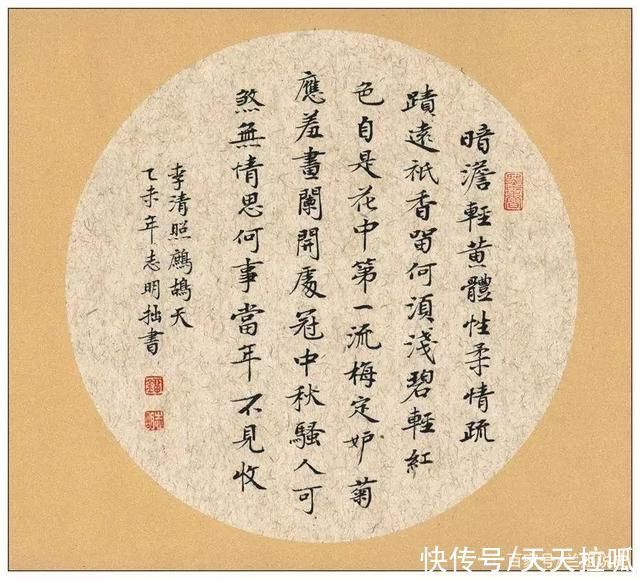 暗澹輕黄體性柔情疏
蹟遠祇香留何湏淺碧輕紅
色自是花中第一流梅定妒菊
應羞畫闌開處冠中秋騷人可
煞無情思何事當年不見收
李清照鷓鴣天
乙未年志明拙書
百家号/
快传号/天天拉呱